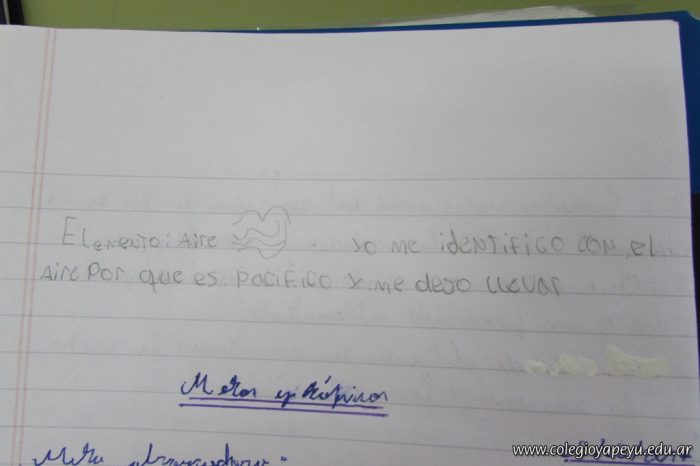 Elemento: Aire yo me identifico con el
Aire por que es pacifico y me dejo llevar
Metas y
Meta
www.colegioyapeyu.edu.ar